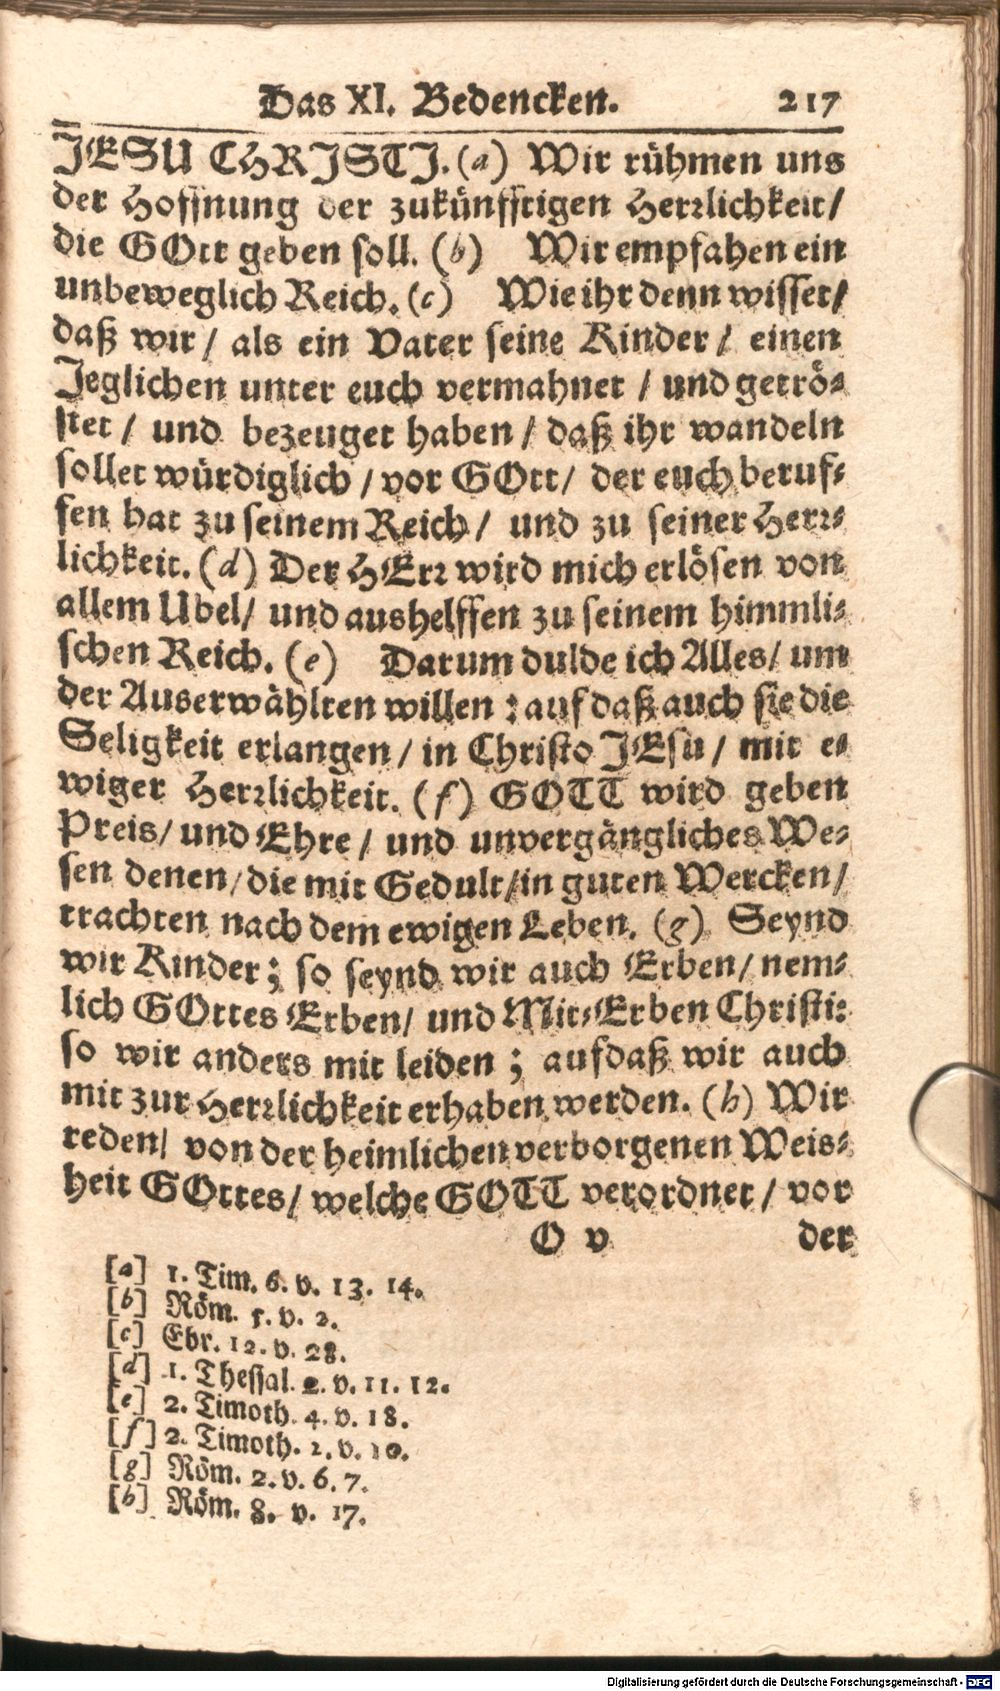 Das XI. Bedencken. 217
JESU CHRJSTJ. (a) Wir rühmen uns
der Hoffnung der zukünfftigen Herrlichkeit/
die GOtt geben soll. (b) Wir empfahen ein
unbeweglich Reich. (c) Wie ihr denn wisset/
daß wir / als ein Vater seine Kinder / einen
Jeglichen unter euch vermahnet / und getrö⸗
stet / und bezeuget haben / daß ihr wandeln
sollet würdiglich / vor GOtt / der euch beruf⸗
fen hat zu seinem Reich / und zu seiner Herr⸗
lichkeit. (d) Der HErr wird mich erlösen von
allem Ubel / und aushelffen zu seinem himmli⸗
schen Reich. (e) Darum dulde ich Alles / um
der Auserwählten willen : auf daß auch sie die
Seligkeit erlangen / in Christo JEsu / mit e⸗
wiger Herrlichkeit. (f) GOTT wird geben
Preis / und Ehre / und unvergängliches We⸗
sen denen / die mit Gedult / in guten Wercken /
trachten nach dem ewigen Leben. (g) Seynd
wir Kinder ; so seynd wir auch Erben / nem⸗
lich GOttes Erben / und Mit⸗Erben Christi:
so wir anders mit leiden ; aufdaß wir auch
mit zur Herrlichkeit erhaben werden. (h) Wir
reden / von der heimlichen verborgenen Weis⸗
heit GOttes / welche GOTT verordnet / vor
O v der
[a] 1. Tim. 6. v. 13. 14.
[b] Röm. 5. v. 2.
[c] Ebr. 12. v. 28.
[d] 1. Thessal. 2. v. 11. 12.
[e] 2. Timoth. 4. v. 18.
[f] 2. Timoth. 2. v. 10.
[g] Röm. 2. v. 6. 7.
[h] Röm. 8. v. 17.
Digitalisierung gefördert durch die Deutsche Forschungsgemeinschaft - DFG